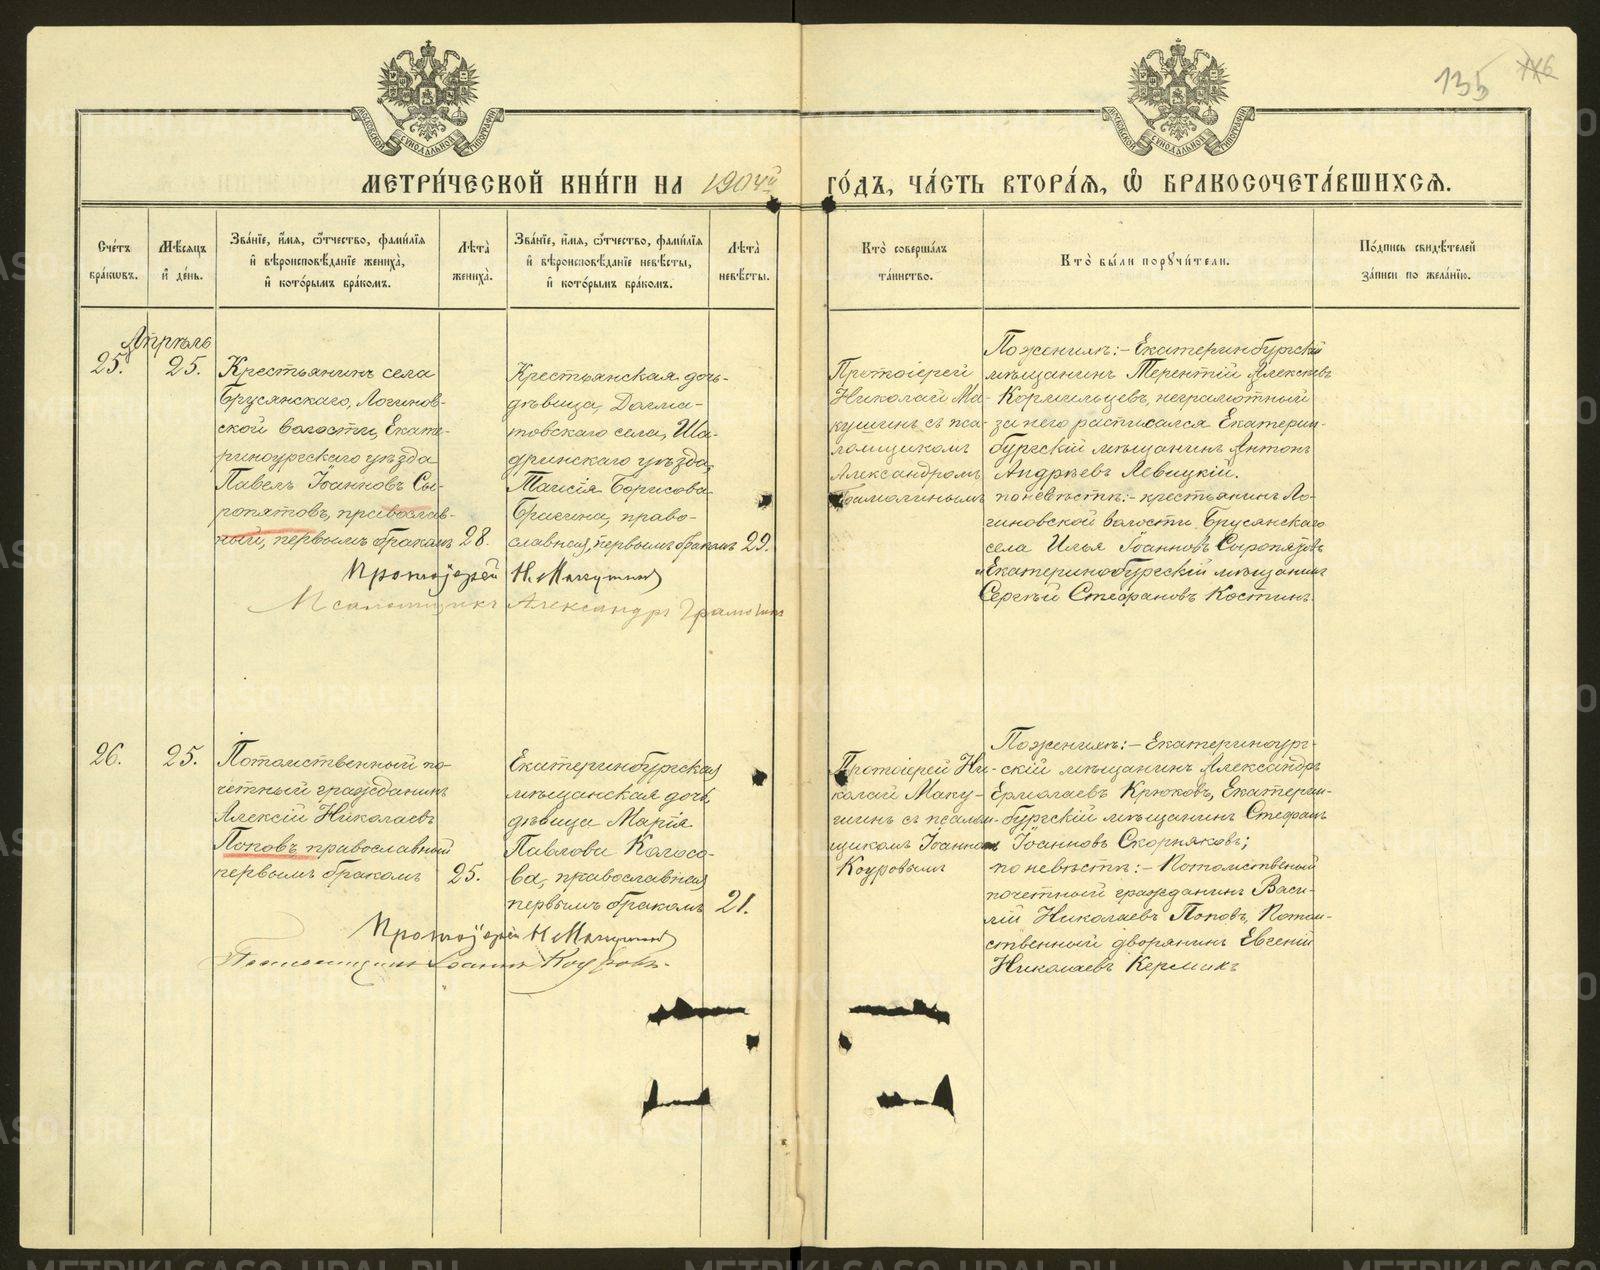 135
116
МОСКОВСКОЙ СѴНОДАЛЬНОЙ ТИПОГРАФІИ
МОСКОВСКОЙ СѴНОДАЛЬНОЙ ТИПОГРАФІИ
МЕТРИ́ЧЕСКОЙ КНИ́ГИ НА 1904й
ГО́ДЪ, ЧА́СТЬ ВТОРА́Ѧ, Ѡ БРАКОСОЧЕТА́ВШИХСѦ.
Сче́тъ
бра́кѡвъ.
Мѣ́сѧцъ
и҆ де́нь.
Зва́нїе, и҆́мѧ, ѻ҆́тчество, фами́лїѧ
и҆ вѣроисповѣ́данїе жениха̀,
и҆ кото́рымъ бра́комъ.
Лѣ́та
жениха̀.
Зва́нїе, и҆́мѧ, ѻ҆́тчество, фами́лїѧ
и҆ вѣроисповѣ́данїе невѣ́сты,
и҆ кото́рымъ бра́комъ.
Лѣ́та
невѣ́сты.
Кто̀ соверша́лъ
та́инство.
Кто̀ бы́ли порꙋчи́тели.
По́дпись свидѣ́телей
за́писи по жела́нїю.
Апрѣль
25.
25.
Крестьянинъ села
Брусянскаго, Логинов-
ской волости, Екате-
ринбургскаго уѣзда
Павелъ Іоанновъ Сы-
ропятовъ, православ-
ный, первымъ бракомъ
28.
Крестьянская дочь-
дѣвица, Далма-
товскаго села, Ша-
дринскаго уѣзда,
Таисія Борисова
Брагина, право-
славная, первымъ бракомъ
29.
Протоіерей
Николай Ма-
кушинъ съ пса-
ломщикомъ
Александромъ
Грамолинымъ
По женихѣ:- Екатеринбургскій
мѣщанинъ Терентій Алексѣевъ
Кормильцевъ, неграмотный
за него расписался Екатерин-
бургскій мѣщанинъ Антонъ
Андреевъ Левицкій.
по невѣстѣ:- крестьянинъ Ло-
гиновской волости, Брусянскаго
села Илья Іоанновъ Сыропятовъ
и Екатеринобургскій мѣщанинъ
Сергѣй Стефановъ Костинъ.
Протоіерей Н. Макушинъ
Псаломщикъ Александръ Грамолинъ
26.
25.
Потомственный по-
четный гражданинъ
Алексій Николаевъ
Поповъ, православный
первымъ бракомъ
25.
Екатеринбургская
мѣщанская дочь,
дѣвица Марія
Павлова Колосо-
ва, православная
первымъ бракомъ
21.
Протоіерей Ни-
колай Маку-
шинъ съ псалом-
щикомъ Іоанномъ
Коуровымъ
По женихѣ:- Екатеринбург-
скій мѣщанинъ Александръ
Ермолаевъ Крюковъ, Екатерин-
бургскій мѣщанинъ Стефанъ
Іоанновъ Скорняковъ;
по невѣстѣ:- Потомственный
почетный гражданинъ Васи-
лій Николаевъ Поповъ, Потом-
ственный дворянинъ Евгеній
Николаевъ Кермикъ
Протоіерей Н Макушинъ
Псаломщикъ Іоаннъ Коуровъ.
METRIKI.GASO-URAL.RU